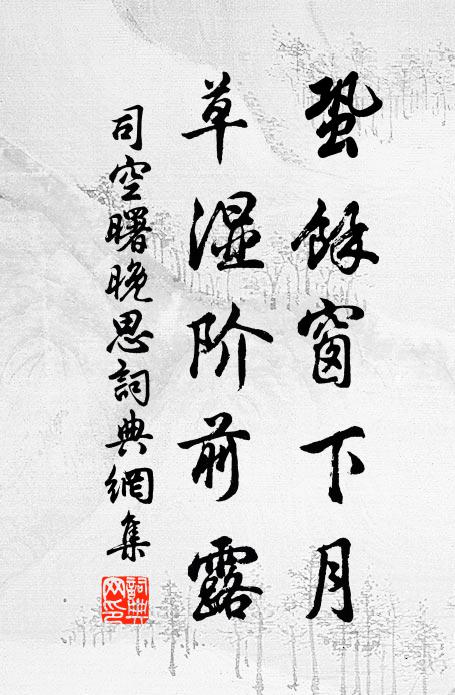 蛩餘窗下月
草湿阶前露
司空曙晚思詞典網集
詞典网印